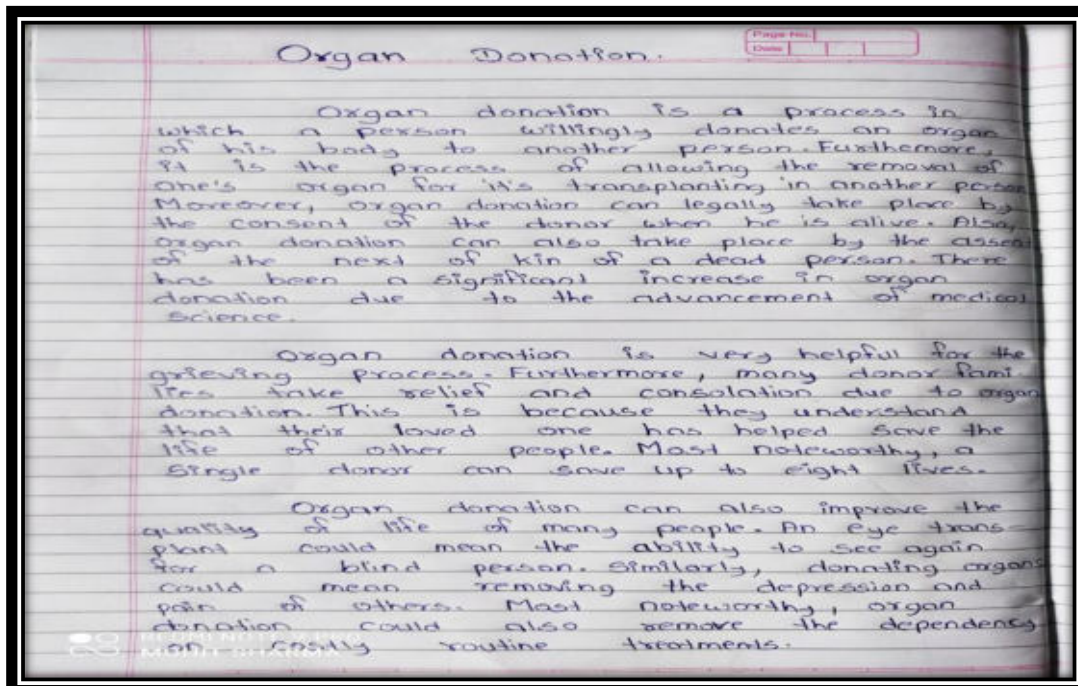 Page No.
Date
Organ Donation.
Organ donation is a process in
which a person willingly donates an organ
of his body to another person. Furthemore,
it is the process of allowing the removal of
one's organ for it's transplanting in another person
Moreover, organ donation can legally take place by
the consent of the donor when he is alive. Also,
organ donation can also take place by the assent
of the next of kin of a dead person. There
has been a significant increase in organ
donation due to the advancement of medical
science.
Organ donation is very helpful for the
grieving process. Furthermore, many donor fami
lies take relief and consolation due to organ
donation. This is because they understand
that their loved one has helped save the
life of other people. Most noteworthy, a
single donor can save up to eight lives.
Organ donation can also improve the
quality of life of many people. An eye trans-
plant could mean the ability to see again
for a blind person. Similarly, donating organs
could mean removing the depression and
pain of others. Most noteworthy, organ
donation could also remove the dependency
on costly routine treatments.
REDMI NOTE 9 PRO
MOHIT SHARMA